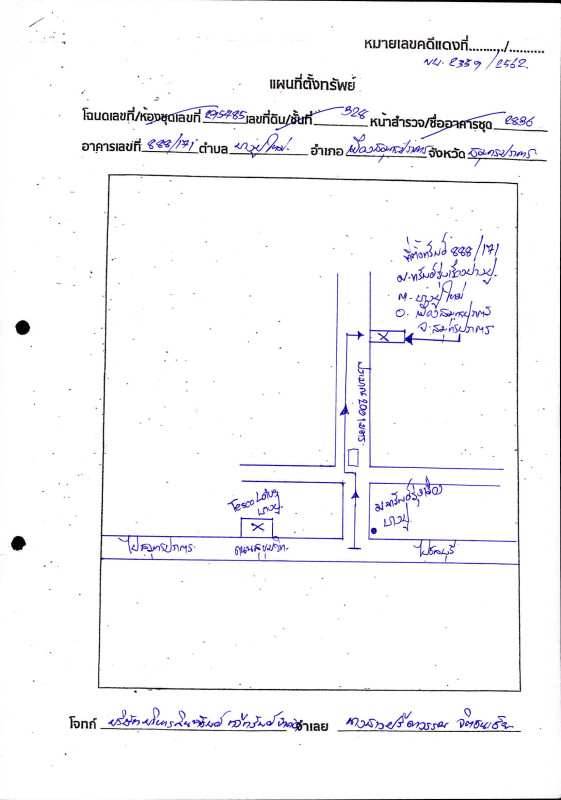 หมายเลขคดีแดงที่........../..........
ผบ. 2359 /2562.
แผนที่ตั้งทรัพย์
โฉนดเลขที่/ห้องชุดเลขที่ 295485 เลขที่ดิน/ชั้นที่ 328 หน้าสำรวจ/ชื่ออาคารชุด 2836
อาคารเลขที่ 888/171 ตำบล บางปูใหม่ อำเภอ เมืองสมุทรปราการ จังหวัด สมุทรปราการ
ที่ตั้งทรัพย์ 888/171
ม.ทรัพย์รุ่งเรืองบางปู
ต. บางปูใหม่
อ. เมืองสมุทรปราการ
จ. สมุทรปราการ
ประมาณ 200 เมตร
Tesco Lotus
บางปู
ม.ทรัพย์รุ่งเรือง
บางปู
ไปสมุทรปราการ
ถนนสุขุมวิท
ไปชลบุรี
โจทก์ บริษัทบริหารสินทรัพย์ จำเลย นางสาว